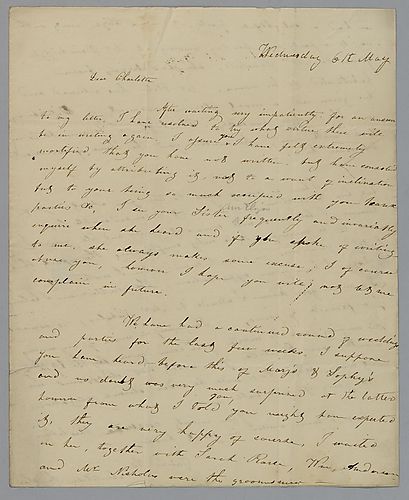 Wednesday 6th May
Dear Charlotte
After waiting very impatiently for an answer
to my letter, I have resolved to try what virtue there will
be in writing again. I assure you I have felt extremely
mortified that you have not written but have consoled
myself by attributing it, not to a want of inclination
but to your being so much occupied with your
parties &c, I see your Sister frequently and invariably
inquire when she heard and if you spoke of writing
to me, she always makes some excuse; I of course
excuse you, however I hope you will not let me
complain in future.
We have had a continued round of weddings
and parties for the last few weeks, I suppose
you have heard before this of Mary's & Sophy's
and no doubt was very much surprised at the latter
however from what I told you, you might have expected
it, they are very happy of course, I waited
on her, together with Sarah Wm. Anderson
and Mr Nicholas were the groomsmen